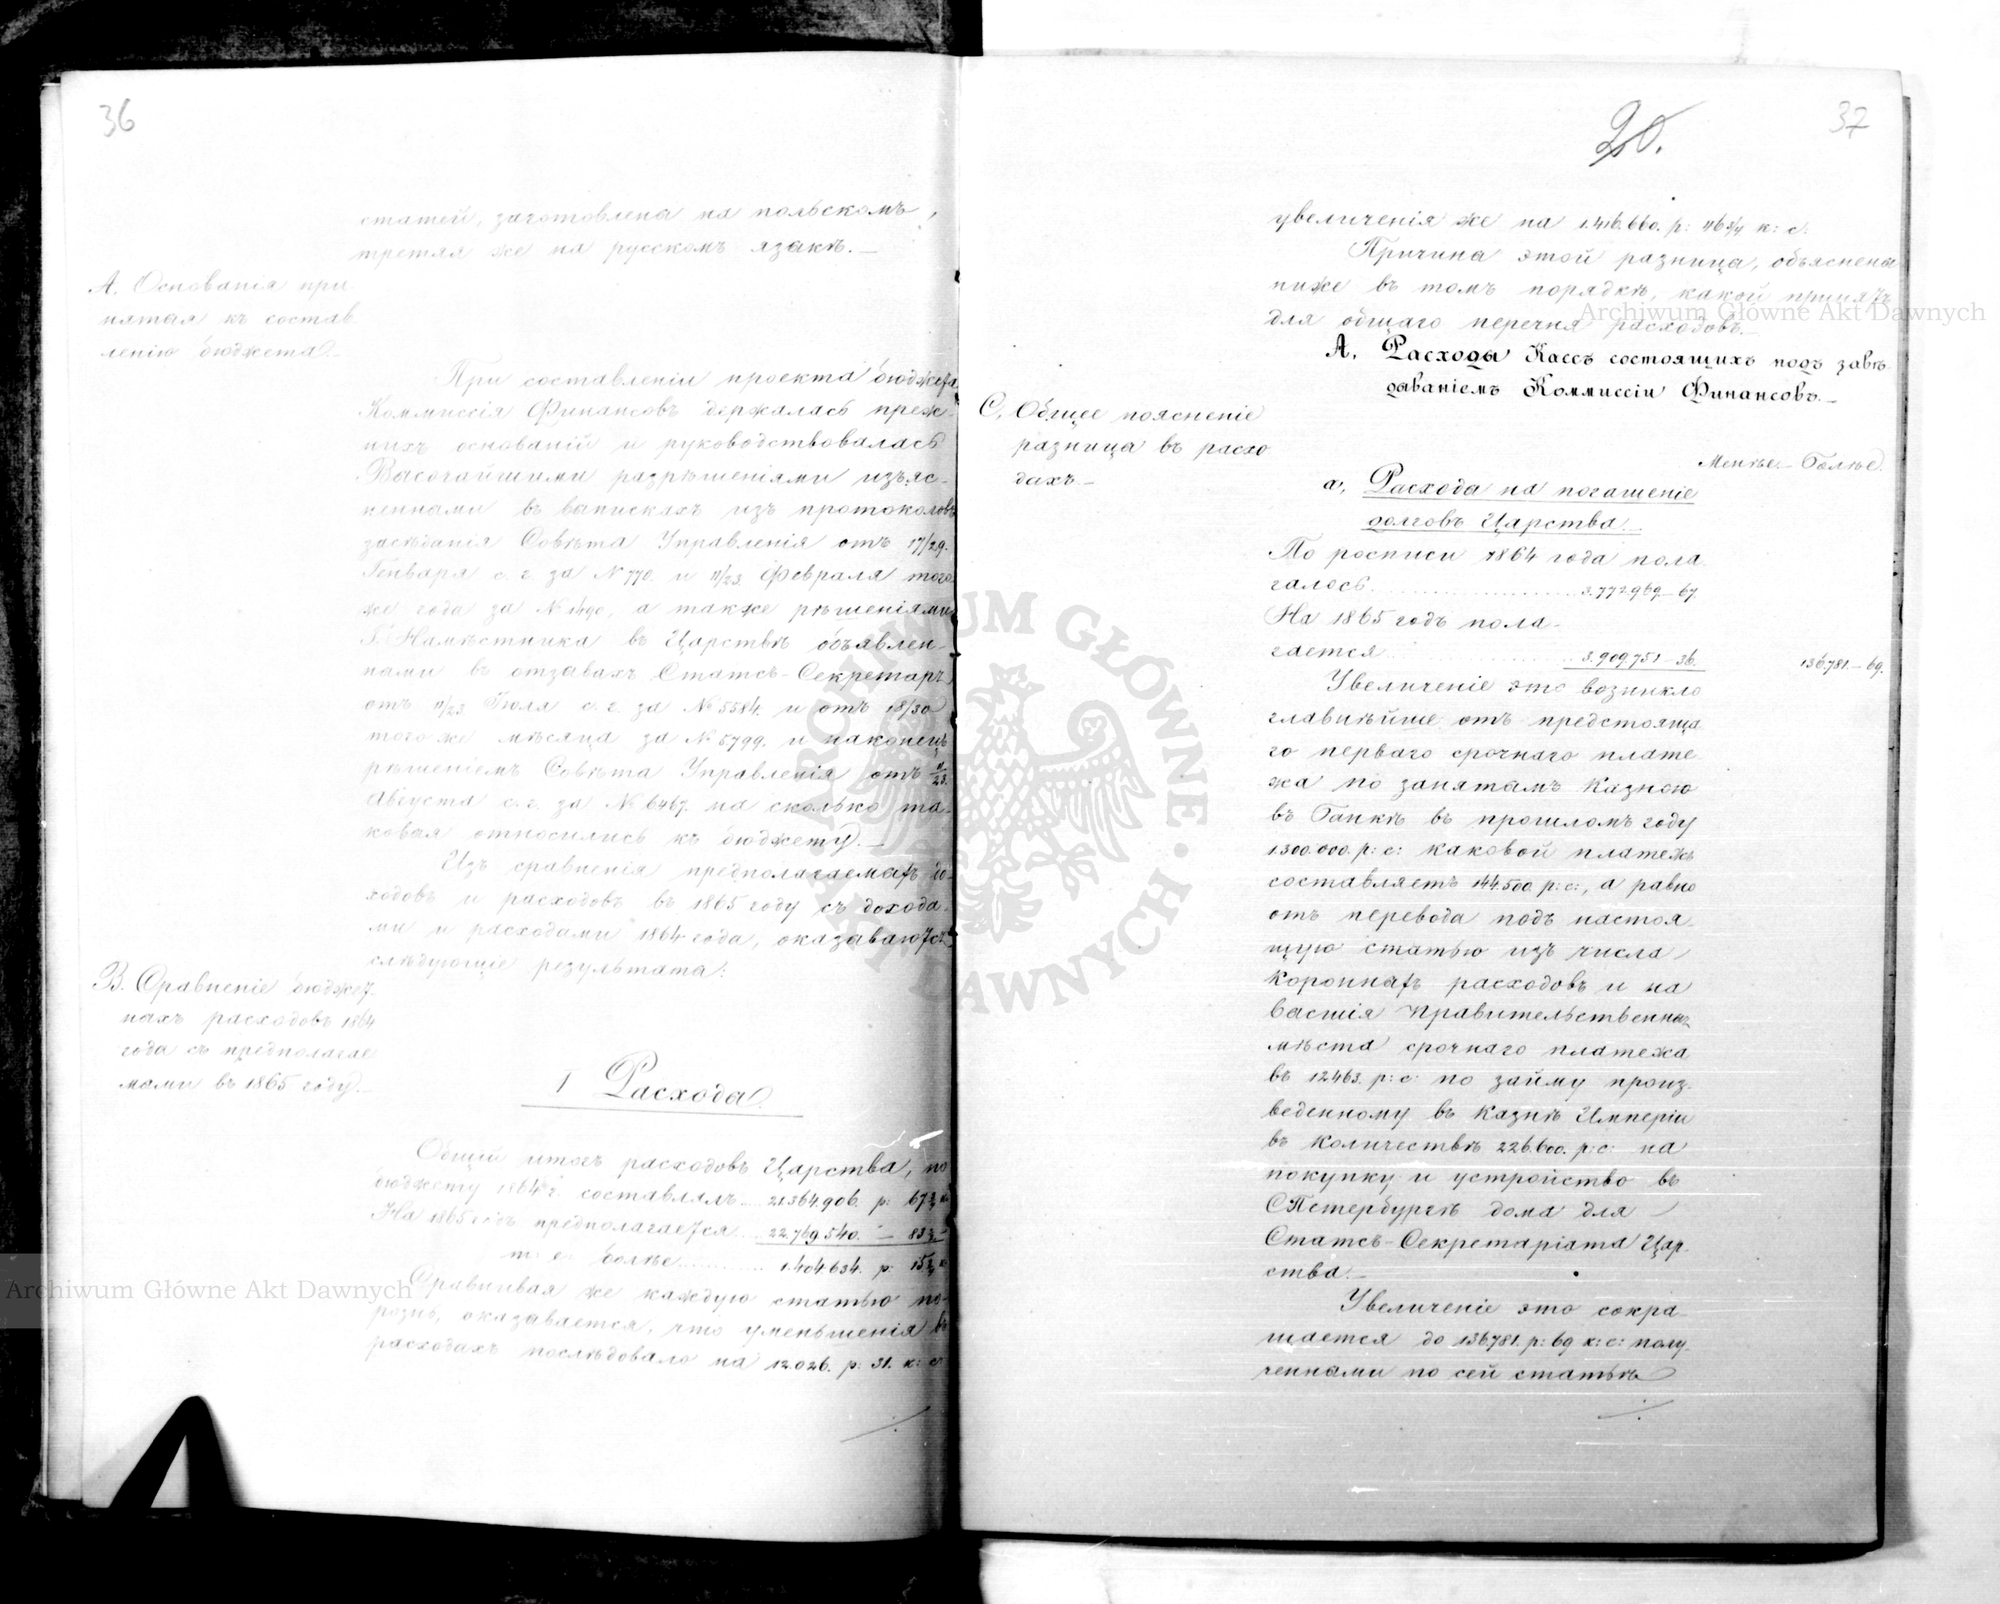 36
статей, заготовлена на польскомъ,
третья же на русскомъ языкѣ.—
А. Основанія при
нятыя къ состав
ленію бюджета.—
При составленіи проекта бюджета
Коммиссія Финансовъ держалась преж-
нихъ основаній и руководствовалась
Высочайшими разрѣшеніями изъяс-
ненными въ выпискахъ изъ протоколовъ
засѣданія Совѣта Управленія отъ 17/29.
Генваря с. г. за № 770. и 11/23 Февраля того
же года за №, а также рѣшеніями
Г. Намѣстника въ Царствѣ объявлен-
ными въ отзывахъ Статсъ-Секретаря
отъ 11/23 Іюля с. г. за № 5584. и отъ 18/30
того же мѣсяца за № 5799. и наконецъ
рѣшеніемъ Совѣта Управленія отъ 11/23.
Августа с. г. за № 6467. на сколько та-
ковыя относились къ бюджету.—
Изъ сравненія предполагаемыхъ до-
ходовъ и расходовъ въ 1865 году съ дохода-
ми и расходами 1864 года, оказываются
слѣдующіе результаты:
В. Сравненіе бюджет
ныхъ расходовъ 1864
года съ предполагае
мыми въ 1865 году.—
I Расходы.
Общій итогъ расходовъ Царства, по
бюджету 1864 г. составлялъ.... 21.364.906. р: 67¾ к
На 1865 годъ предполагается... 22.769.540. — 83½ —
т. е. болѣе............ 1.404.634. р: 15¾ к
Сравнивая же каждую статью по-
рознь, оказывается, что уменьшенія въ
расходахъ послѣдовало на 12.026. р: 31. к: с
37
20.
увеличенія же на 1.416.660. р: 46¾ к: с.
Причина этой разницы, объяснена
ниже въ томъ порядкѣ, какой принятъ
для общаго перечня расходовъ.—
А. Расходы Кассъ состоящихъ подъ завѣ-
дываніемъ Коммиссіи Финансовъ.—
С. Общее поясненіе
разницы въ расхо
дахъ.—
Менѣе.— Болѣе.
а, Расходы на погашеніе
долговъ Царства.
По росписи 1864 года пола
галось........................3.772.969.—67.
На 1865 годъ пола-
гается....................3.909.751—36. 136.781.—69.
Увеличеніе это возникло
главнѣйше отъ предстояща
го перваго срочнаго плате
жа по занятымъ Казною
въ Банкѣ въ прошломъ году
1300.000. р: с: каковой платежъ
составляетъ 144.500. р: с:, а равно
отъ перевода подъ настоя
щую статью изъ числа
Коронныхъ расходовъ и на
Высшія Правительственныя
мѣста срочнаго платежа
въ 12463. р: с: по займу произ-
веденному въ Казнѣ Имперіи
въ количествѣ 226.600. р: с: на
покупку и устройство въ
СПетербургѣ дома для
Статсъ-Секретаріата Цар-
ства.—
Увеличеніе это сокра-
щается до 136781. р: 69 к: с: полу-
ченными по сей статьѣ
ARCHIWUM GŁÓWNE AKT DAWNYCH
Archiwum Główne Akt Dawnych
Archiwum Główne Akt Dawnych